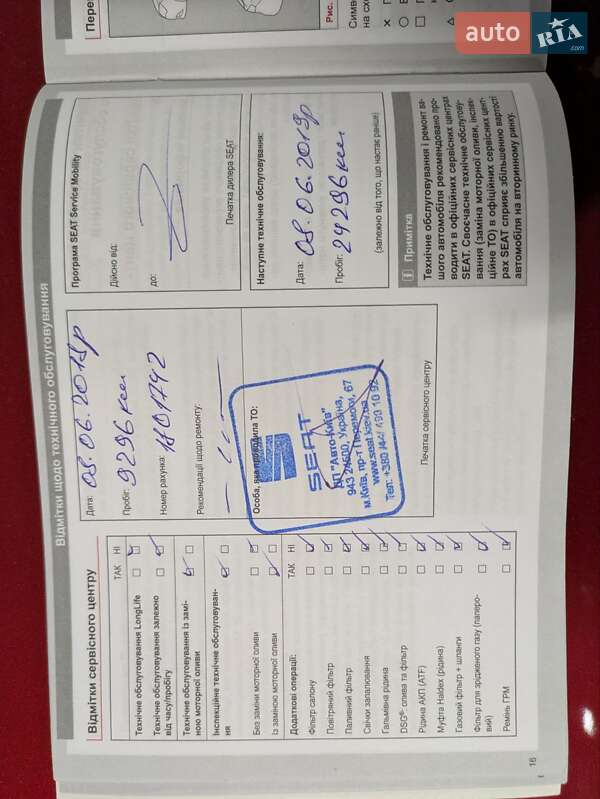 Пере
Рис.
Симв
на сх
auto
RIA
.com
Відмітки щодо технічного обслуговування
Відмітки сервісного центру
ТАК НІ
Технічне обслуговування LongLife
Технічне обслуговування залежно
від часу/пробігу
Технічне обслуговування із замі-
ною моторної оливи
Інспекційне технічне обслуговуван-
ня
Без заміни моторної оливи
Із заміною моторної оливи
Додаткові операції: ТАК НІ
Фільтр салону
Повітряний фільтр
Паливний фільтр
Свічки запалювання
Гальмівна рідина
DSG® олива та фільтр
Рідина АКП (ATF)
Муфта Haldex (рідина)
Газовий фільтр + шланги
Фільтр для зрідженого газу (паперо-
вий)
Ремінь ГРМ
Дата: 08.06.2018р
Пробіг: 9296 км
Номер рахунка:
Рекомендації щодо ремонту:
Особа, яка проводила ТО:
SEAT
ДП "Авто-Київ"
943 24500, Україна,
м.Київ, пр-т Перемоги, 67
www.seat.kiev.ua
Тел: +380 (44) 499 10 92
Печатка сервісного центру
Програма SEAT Service Mobility
Дійсно від:
до:
Печатка дилера SEAT
Наступне технічне обслуговування:
Дата: 08.06.2019р
Пробіг: 24296 км
(залежно від того, що настає раніше)
i Примітка
Технічне обслуговування і ремонт ва-
шого автомобіля рекомендовано про-
водити в офіційних сервісних центрах
SEAT. Своєчасне технічне обслугову-
вання (заміна моторної оливи, інспек-
ційне ТО) в офіційних сервісних цент-
рах SEAT сприяє збільшенню вартості
автомобіля на вторинному ринку.
16